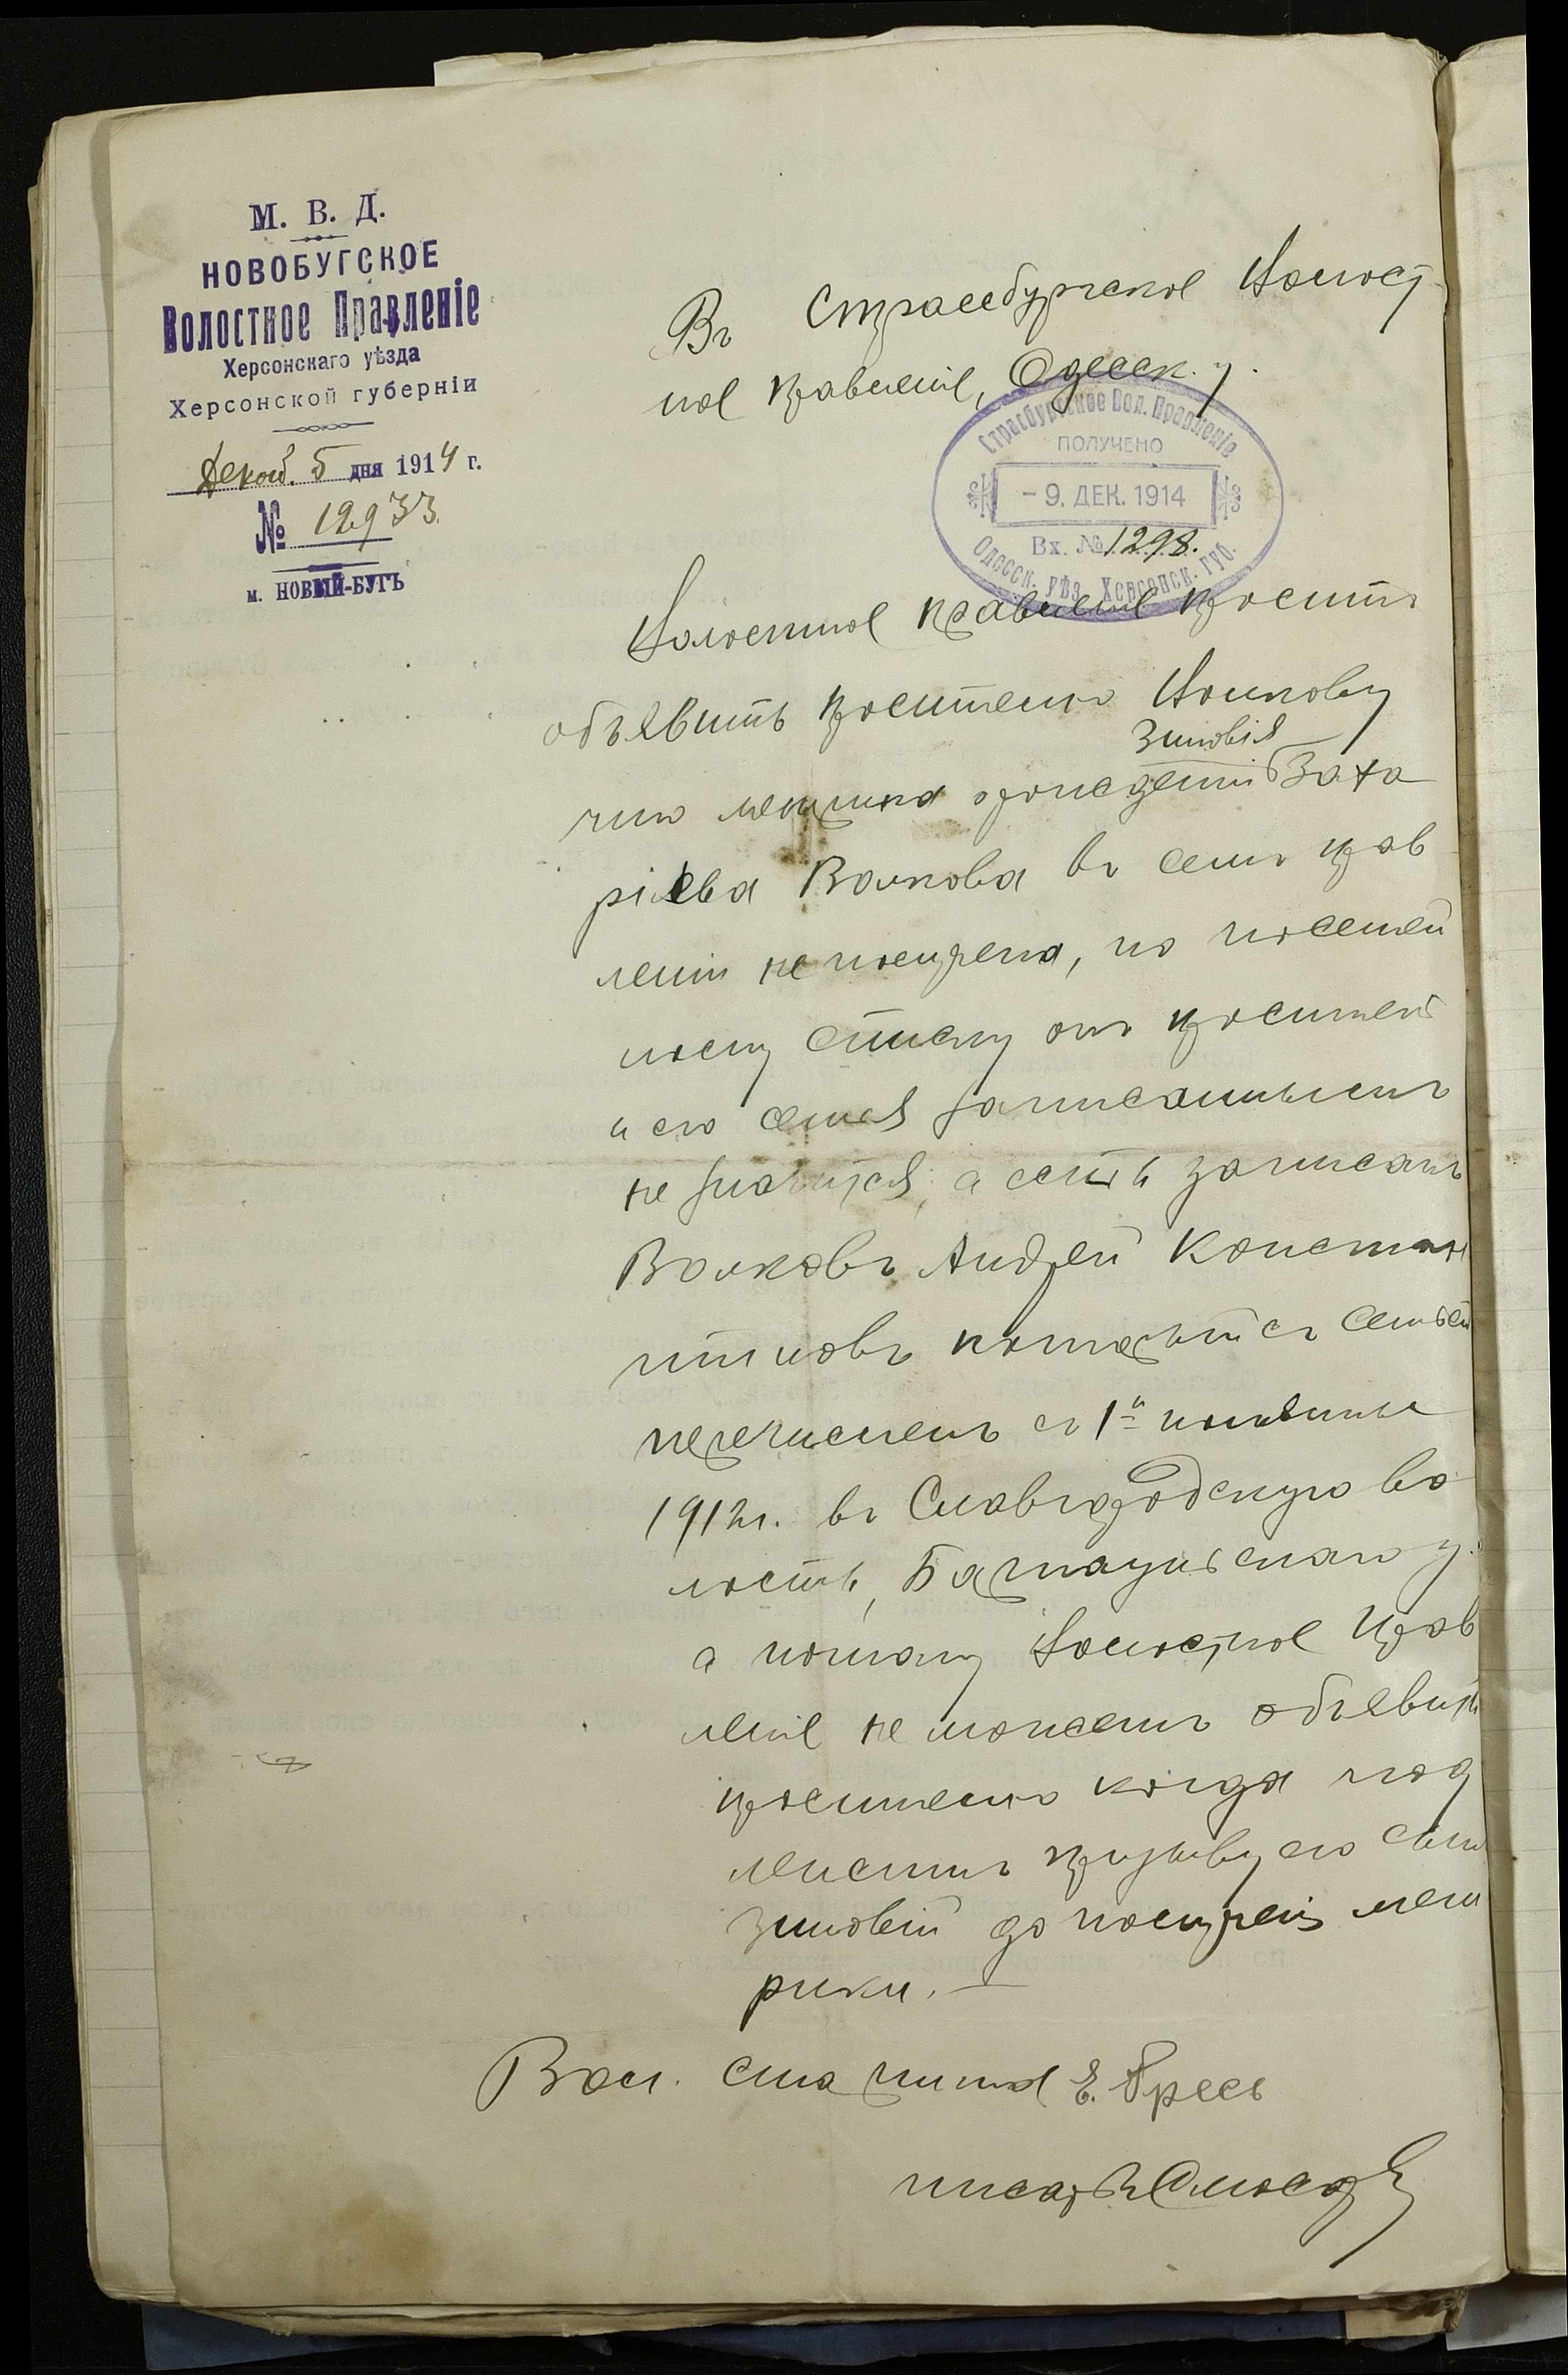 М. В. Д.
НОВОБУГСКОЕ
Волостное Правленіе
Херсонскаго уѣзда
Херсонской губерніи
Декаб. 5 дня 1914 г.
№ 12933.
м. НОВЫЙ-БУГЪ
Въ Страссбургское Волост
ное правленіе, Одесск. у.
Страсбургское Вол. Правленіе
ПОЛУЧЕНО
- 9. ДЕК. 1914
Вх. № 1298.
Одесск. уѣз. Херсонск. губ.
Волостное правленіе проситъ
объявить просителю Волкову
Зиновія
что метрика о рожденіи Заха
ріева Волкова въ семъ прав
леніи не получена, по посемей
ному списку онъ проситель
и его семья записанными
не значится, а есть записанъ
Волковъ Андрей Констан
тиновъ который съ семьей
перечисленъ съ 1й половины
1912 г. въ Славгородскую во
лость, Барнаульскаго у.
а потому Волостное Прав
леніе не можетъ объявить
просителю когда под
лежитъ призыву его сынъ
Зиновій до полученія мет
рики. —
Вол. старшина Е.
писарь